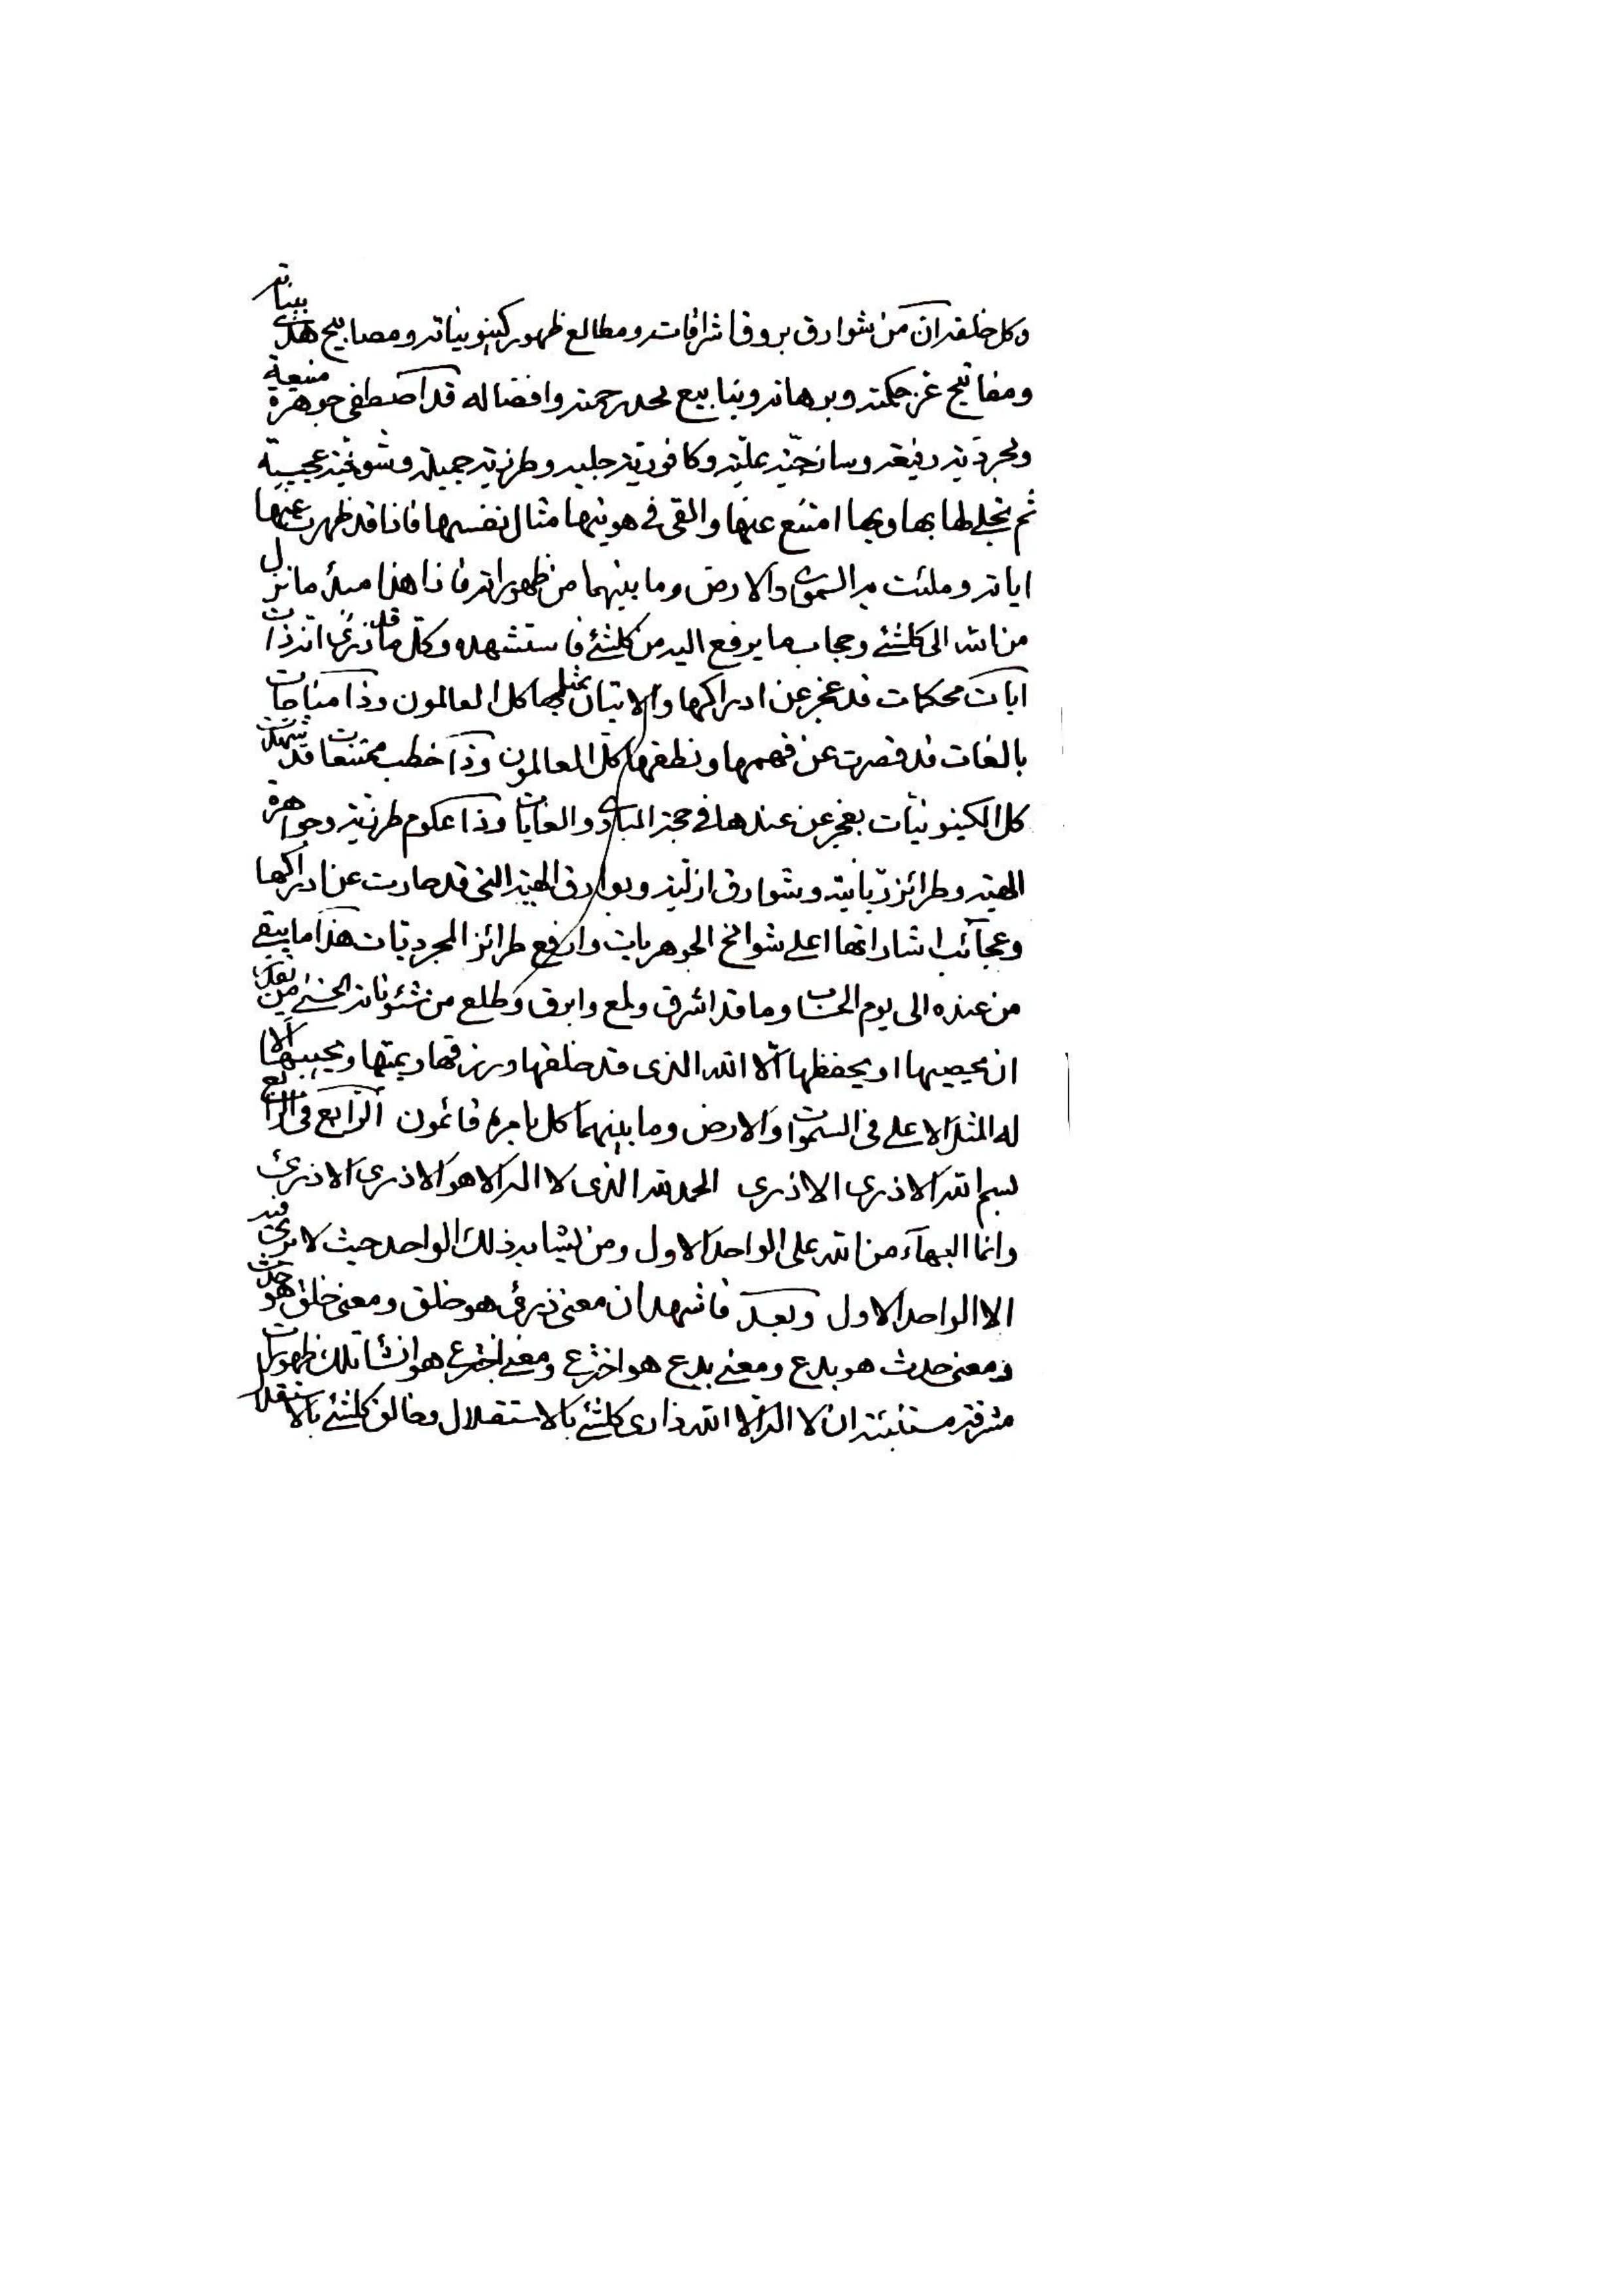 وكل خلقه ان من شوارق بروق اشراقات ومطالع ظهور كينونياته ومصابيح هدى بيناته
ومفاتيح عز حكمته وبرهانه وينابيع مجد رحمته وافضاله قد اصطفى جوهرة منيعة
ومجردية رفيعة وساذجية علية وكافورية جلية وطرزية جميلة وشوخية عجيبة
ثم تجلى لها بها وبها امتنع عنها والقى في هويتها مثال نفسها فاذا قد ظهرت عنها
اياته وملئت به السموات والارض وما بينهما من ظهوراته فاذا هذا مبدء ما نزل
من الله الى كلشئ وحجاب ما يرفع اليه من كلشئ فاستشهده وكل ما قد ذرئ انه ذات
ايات محكمات قد عجز عن ادراكها والاتيان بمثلها كل العالمون وذا مناجات
بالغات قد قصرت عن فهمها ونطقها كل العالمون وذا خطب ممتنعات قد شهدت
كل الكينونيات بعجز عن عندها في حجة المبادى والغايات وذا علوم طرزية وجواهرة
الهية وطرائز ربانية وشوارق ازلية وبوارق الهية التي قد حارت عن ادراكها
وعجائب اشاراتها اعلى شوامخ الجوهريات وارفع طرائز المجرديات هذا ما يبقى
من عنده الى يوم الحساب وما قد اشرق ولمع وابرق وطلع من شئوناته الخمسة من يقدر
ان يحصيها او يحفظها الا الله الذى قد خلقها ورزقها ويميتها ويحييها الا
له المثل الاعلى في السموات والارض وما بينهما كل بامره قائمون الرابع في الرابع
بسم الله الاذرء الاذرء الحمد لله الذى لا اله الا هو الاذرء الاذرء
وانما البهاء من الله على الواحد الاول ومن يشابه ذلك الواحد حيث لا يرى فيه
الا الواحد الاول وبعد فاشهد ان معنى ذرء هو خلق ومعنى خلق هو حدث
ومعنى حدث هو بدع ومعنى بدع هو اخترع ومعنى اخترع هو انشا تلك ظهورات
مشرقة مستنبئة ان لا اله الا الله ذارئ كلشئ بالاستقلال وخالق كلشئ بالاستقلال